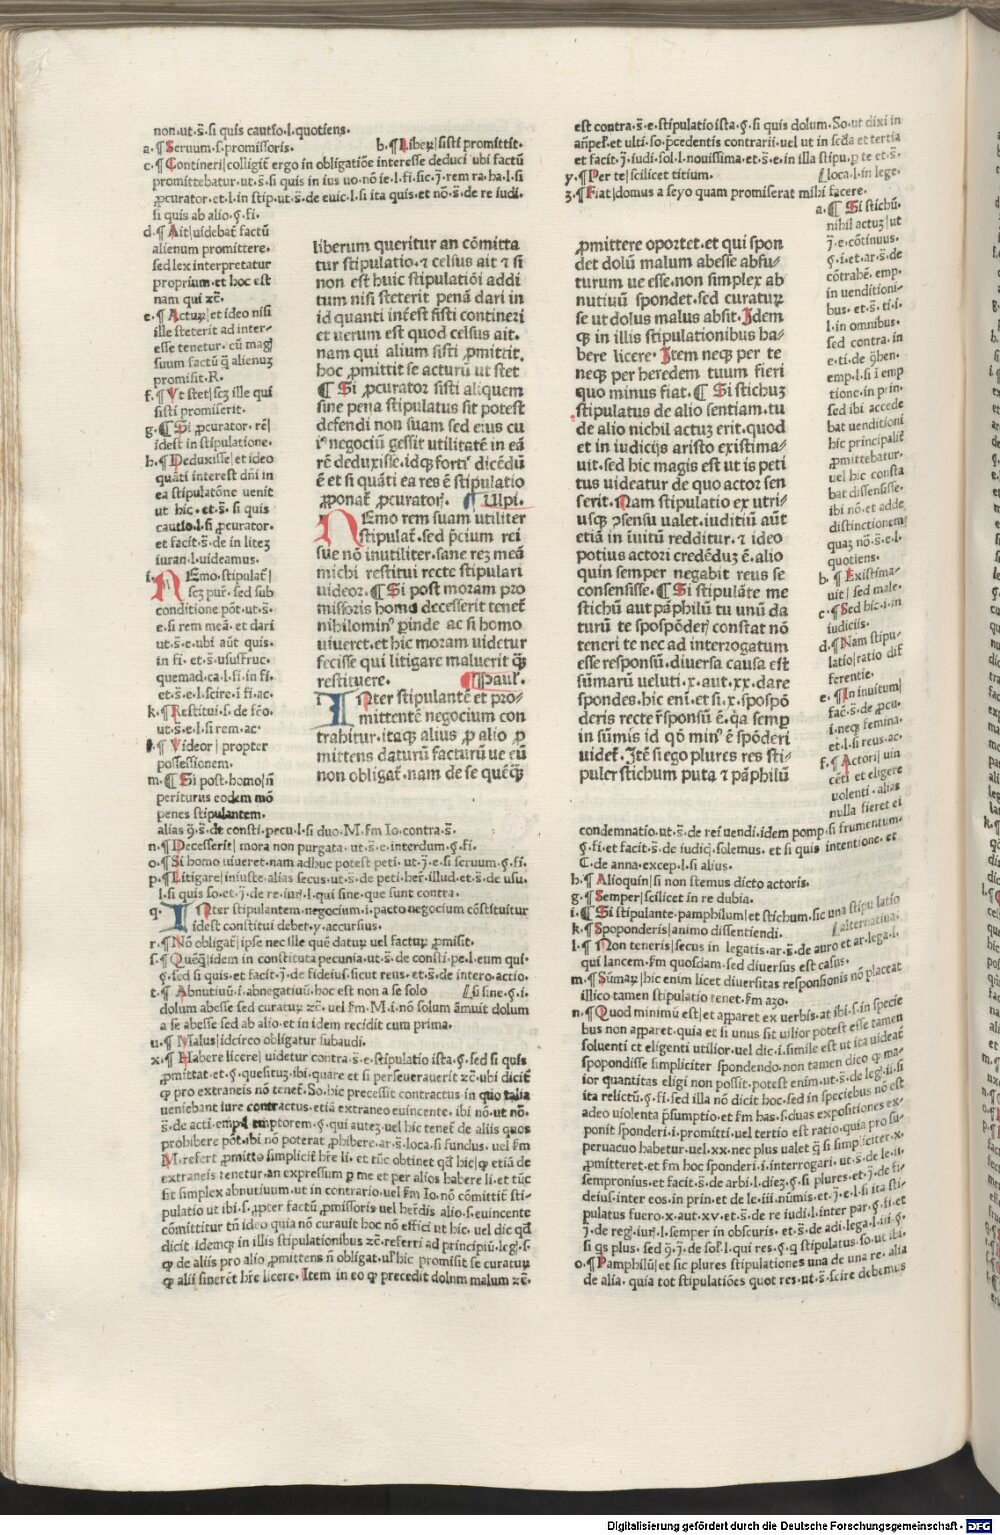 non·ut·s̄·si quis cautio·l·quotiens·
a·¶Seruum·s·promissoris·
b·¶Liber|sisti promittit·
c·¶Contineri|colligit̄ ergo in obligatiōe interesse deduci ubi factū
promittebatur·ut·s̄·si quis in ius uo·nō ie·l·fi·sic·j̄·rem ra·ha·l·si
ꝓcurator·et·l·in stip·ut·s̄·de euic·l·si ita quis·et nō·s̄·de re iudi·
si quis ab alio·ꝯ·fi·
d·¶Ait|uidebat̄ factū
alienum promittere·
sed lex interpretatur
proprium·et hoc est
nam qui ⁊c̄·
e·¶Actuꝝ|et ideo nisi
ille steterit ad inter-
esse tenetur·
promisit·R·
f·¶Vt stet|scꝫ ille qui
sisti promiserit·
g·¶Si ꝓcurator·rē|
idest in stipulatione·
h·¶Deduxisse|et ideo
quāti interest dn̄i in
ea stipulatōne uenit
ut hic·et·s̄·si quis
cautio·l·si ꝓcurator·
et facit·s̄·de in liteꝫ
iuran·l·uideamus·
i·NEmo·stipulat̄|
scꝫ pur̄·sed sub
conditione pōt·ut·s̄·
e·si rem meā·et dari
ut·s̄·e·ubi aūt quis·
in fi·et·s̄·ususfruc·
quemad·ca·l·fi·in fi·
et·s̄·e·l·scire·i fi·ac·
k·¶Restitui·s·de fēo·
ut·s̄·e·l·si rem·ac·
¶Videor|propter
possessionem·
m·¶Si post·homo|n̄
periturus eodem mō
penes stipulantem·
liberum queritur an cōmitta
tur stipulatio·⁊ celsus ait ⁊ si
non est huic stipulatiōi addi
tum nisi steterit penā dari in
id quanti inēst sisti contineri
et uerum est quod celsus ait·
nam qui alium sisti ꝓmittit·
hoc ꝓmittit se acturū ut stet
¶Si ꝓcurator sisti aliquem
sine pena stipulatus sit potest
defendi non suam sed eius cu
iꝰ negociū gessit utilitatē in eā
rē deduxisse·idqꝫ fortiꝰ dicēdū
ē et si quāti ea res ē stipulatio
ꝓponat̄ ꝓcuratorī· ¶Ulpi·
NEmo rem suam utiliter
stipulat̄·sed p̄cium rei
sue nō inutiliter·sane reꝫ meā
michi restitui recte stipulari
uideor·¶Si post moram pro
missoris homo decesserit tenet̄
nihilominꝰ ꝑinde ac si homo
uiueret·et hic moram uidetur
fecisse qui litigare maluerit qꝫ̄
restituere· ¶Paul̄·
INter stipulantē et pro-
mittentē negocium con
trahitur·itaqꝫ alius ꝓ alio ꝓ
mittens daturū facturū ue eū
non obligat̄·nam de se quēqꝫ̄
alias ꝯ̄·s̄·de consti·pecu·l·si duo·M·fm Io·contra·s̄·
n·¶Decesserit|mora non purgata·ut·s̄·e·interdum·ꝯ·fi·
o·¶Si homo uiueret·nam adhuc potest peti·ut·j̄·e·si seruum·ꝯ·fi·
p·¶Litigare|iniuste·alias secus·ut·s̄·de peti·her̄·illud·et·s̄·de usu·
l·si quis so·et·j̄·de re·iur̄·l·qui sine·que sunt contra·
q·INter stipulantem·negocium·i·pacto negocium cōstituitur
idest constitui debet·y·accursius·
r·¶Nō obligat̄|ipse nec ille quē datuꝝ uel factuꝝ ꝓmisit·
s·¶Quēqꝫ̄|idem in constituta pecunia·ut·s̄·de consti·pe·l·eum qui·
ꝯ·sed si quis·et facit·j̄·de fideius·sicut reus·et·s̄·de intero·actio·
t·¶Abnutiuū·i·abnegatiuū·hoc est non a se solo [si sine·ꝯ·i·
dolum abesse sed curatuꝝ ⁊c̄·uel fm·M·i·nō solum āmuit dolum
a se abesse sed ab alio·et in idem recidit cum prima·
u·¶Malus|idcirco obligatur subaudi·
x·¶Habere licere|uidetur contra·s̄·e·stipulatio ista·ꝯ·sed si quis
ꝓmittat·et·ꝯ·quesituꝫ·ibi·quare et si perseuerauerit ⁊c̄·ubi dicit̄
ꝙ pro extraneis nō tenet̄·So·hic precessit contractus in quo talia
ueniebant iure contractus·etiā extraneo euincente·ibi nō·ut nō·
s̄·de acti·empti emptorem·ꝯ·qui auteꝫ·uel hic tenet̄ de aliis quos
prohibere pōt·ibi nō poterat ꝓhibere·ar·s̄·loca·si fundus·uel fm
M·refert ꝓmitto simplicit̄ hr̄e li·et tūc obtinet qd̄ hic|ꝙ etiā de
extraneis tenetur·an expressum ꝑ me et per alios habere li·et tūc
fit simplex abnutiuum·ut in contrario·uel fm Io·nō cōmittit̄ sti-
pulatio ut ibi·s·ꝓpter factū ꝓmissoris uel her̄dis alio·s·euincente
cōmittitur tn̄ ideo quia nō curauit hoc nō effici ut hic·uel dic qd̄
dicit idemqꝫ in illis stipulationibus ⁊c̄·referri ad principiū·leḡ·s·
ꝙ de aliis pro alio ꝓmittens n̄ obligat·ul̄ hic promisit se curatuꝝ
ꝙ alii sinerēt hr̄e licere·Item in eo ꝙ precedit dolum malum ⁊c̄·
est contra·s̄·e·stipulatio ista·ꝯ·si quis dolum·So·ut dixi in
an̄pel̄·et ulti·so·p̄cedentis contrarii·uel ut in scd̄a et tertia
et facit·j̄·iudi·sol·l·nouissima·et·s̄·e·in illa stipu·ꝑ te et·s̄·
y·¶Per te|scilicet titium· [loca·l·in lege·
z·¶Fiat|domus a seyo quam promiserat mihi facere·
ꝓmittere oportet·et qui spon
det dolū malum abesse abfu/
turum ue esse·non simplex ab
nutiuū spondet·sed curatuꝝ
se ut dolus malus absit·Idem
qꝫ in illis stipulationibus ha/
bere licere·Item neqꝫ per te
neqꝫ per heredem tuum fieri
quo minus fiat·¶Si stichuꝫ
stipulatus de alio sentiam·tu
de alio nichil actuꝫ erit·quod
et in iudicijs aristo existima/
uit·sed hic magis est ut is peti
tus uideatur de quo actor sen
serit·Nam stipulatio ex utri/
usqꝫ ꝯsensu ualet·iuditiū aūt
etiā in iuitū redditur·⁊ ideo
potius actori credēduꝫ ē·alio
quin semper negabit reus se
consensisse·¶Si stipulāte me
stichū aut pāphilū tu unū da
turū te spospōderꝭ constat nō
teneri te nec ad interrogatum
esse responsū·diuersa causa est
sūmarū ueluti·x·aut·xx·dare
spondes·hic enī·et si·x·spospō
deris recte r̄sponsū ē·q̄a semꝑ
in sūmis id qō minꝰ ē spōderi
uidet̄·Itē si ego plures res sti-
puler stichum puta ⁊ pāphilū
a·¶Si stichū·
nihil actuꝫ|ut
j̄·e·cōtinuus·
ꝯ·i·et·ar·s̄·de
cōtrahē·emp·
in uenditioni-
bus·et·s̄·ti·i·
l·in omnibus·
sed contra·in
e·ti·de ꝯ̄hen·
emp·l·si ī emp
tione·in prin·
sed ibi accede
bat uenditioni
hic principalit̄
ꝓmittebatur·
uel hic consta
bat dissensisse·
ibi nō·et adde
distinctionem
quaꝫ nō·s̄·e·l·
quotiens·
b·¶Existima-
uit|sed male·
c·¶Sed hic·i·in
iudiciis·
d·¶Nam stipu-
latio|ratio dif
ferentie·
e·¶In inuitum|
fac̄·s̄·de ꝓcu·
i·neqꝫ femina·
et·l·si reus·ac·
f·¶Actori|uin
cēti et eligere
uolenti·alias
nulla fieret ei
condemnatio·ut·s̄·de rei uendi·idem pomp·si frumentum·
ꝯ·fi·et facit·s̄·de iudicꝭ·solemus·et si quis intentione·et
C·de anna·excep·l·si alius·
h·¶Alioquin|si non stemus dicto actoris·
g·¶Semper|scilicet in re dubia·
i·¶Si stipulante·pamphilum|et stichum·sic una stipulatio
k·¶Spoponderis|animo dissentiendi· [alternatiua·
l·¶Non teneris|secus in legatis·ar·s̄·de auro et ar·lega·l·
qui lancem·fm quosdam·sed diuersus est casus·
m·¶Sūmaꝝ|hic enim licet diuersitas responsionis nō placeat
illico tamen stipulatio tenet·fm azo·
n·¶Quod minimū est|et apparet ex uerbis·at ibi·s·in specie
bus non apparet·quia et si unus sit uilior potest esse tamen
soluenti et eligenti utilior·uel dic·i·simile est ut ita uideat̄
spopondisse simpliciter spondendo·non tamen dico ꝙ ma-
ior quantitas eligi non possit·potest enim·ut·s̄·de leḡ·ii·si
ita relictū·ꝯ·fi·sed illa nō dicit hoc·sed in speciebus nō est
adeo uiolenta p̄sumptio·et fm has·s·duas expositiones ex-
ponit sponderi·i·promitti·uel tertio est ratio·quia pro su-
peruacuo habetur·uel·xx·nec plus ualet qꝫ̄ si simpliciter·x·
ꝓmitteret·et fm hoc sponderi·i·interrogari·ut·s̄·de le·ii·
sempronius·et facit·s̄·de arbi·l·dieꝫ·ꝯ·si plures·et·j̄·de fi-
deius·inter eos·in prin·et de le·iii·nūmis·et·j̄·e·l·si ita sti-
pulatus fuero·x·aut·xv·et·s̄·de re iudi·l·inter par·ꝯ·fi·et
j̄·de reg·iur̄·l·semper in obscuris·et·s̄·de adi·lega·l·iii·ꝯ·
si qs plus·sed ꝯ̄·j̄·de sol̄·l·qui res·ꝯ·q stipulatus·so·ut ibi·
o·¶Pamphilū|et sic plures stipulationes una de una re·alia
de alia·quia tot stipulatiōes quot res·ut·s̄·scire debemus
Digitalisierung gefördert durch die Deutsche Forschungsgemeinschaft · DFG